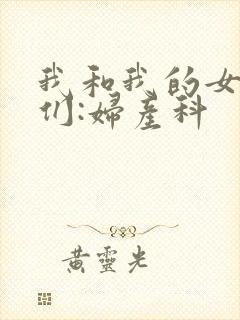 我和我的女
们:婦產科
黃靈光